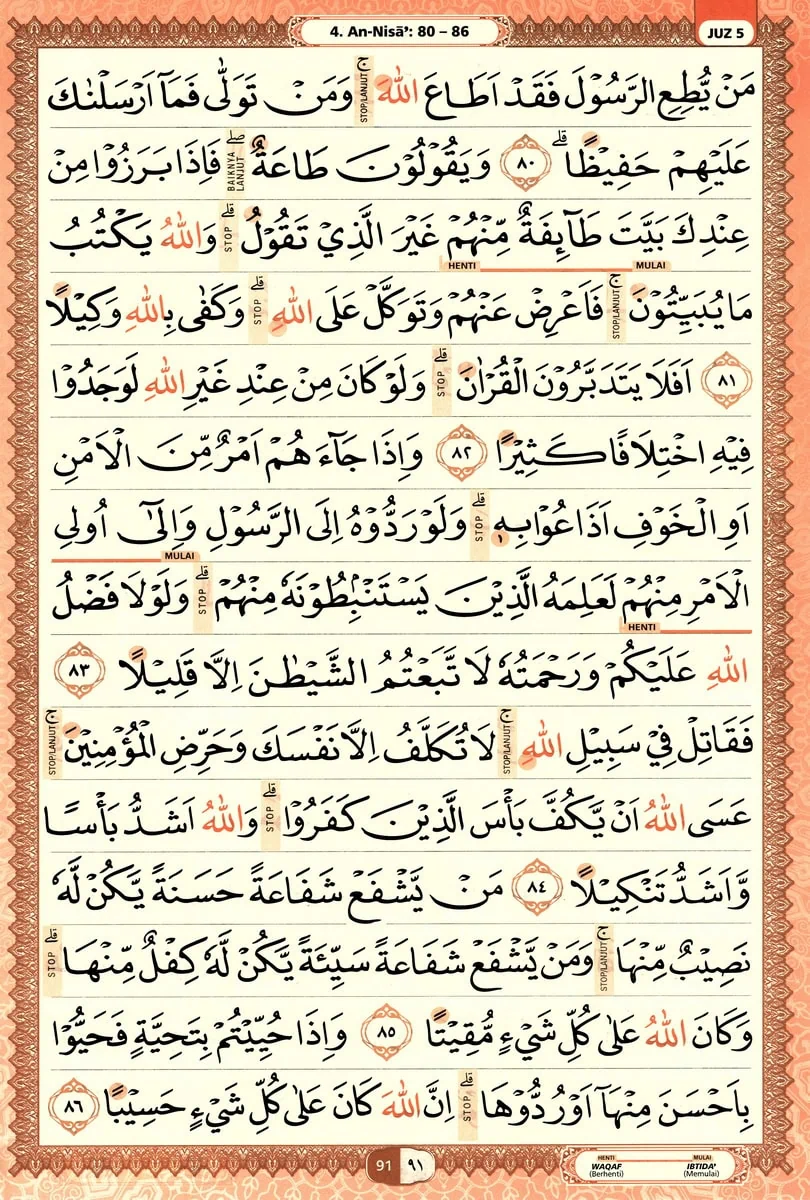 4. An-Nisā': 80 – 86
JUZ 5
مَنْ يُّطِعِ الرَّسُوْلَ فَقَدْ اَطَاعَ اللّٰهَ ۚ STOP/LANJUT وَمَنْ تَوَلّٰى فَمَآ اَرْسَلْنٰكَ
عَلَيْهِمْ حَفِيْظًا ۗ ٨٠ وَيَقُوْلُوْنَ طَاعَةٌ ۖ BAIKNYA LANJUT فَاِذَا بَرَزُوْا مِنْ
عِنْدِكَ بَيَّتَ طَاۤىِٕفَةٌ مِّنْهُمْ غَيْرَ الَّذِيْ تَقُوْلُ ۗ STOP وَاللّٰهُ يَكْتُبُ
MULAI HENTI
مَا يُبَيِّتُوْنَ ۚ STOP/LANJUT فَاَعْرِضْ عَنْهُمْ وَتَوَكَّلْ عَلَى اللّٰهِ ۗ STOP وَكَفٰى بِاللّٰهِ وَكِيْلًا
٨١ اَفَلَا يَتَدَبَّرُوْنَ الْقُرْاٰنَ ۗ STOP وَلَوْ كَانَ مِنْ عِنْدِ غَيْرِ اللّٰهِ لَوَجَدُوْا
فِيْهِ اخْتِلَافًا كَثِيْرًا ٨٢ وَاِذَا جَاۤءَهُمْ اَمْرٌ مِّنَ الْاَمْنِ
اَوِ الْخَوْفِ اَذَاعُوْا بِهٖ ۗ STOP وَلَوْ رَدُّوْهُ اِلَى الرَّسُوْلِ وَاِلٰٓى اُولِى
MULAI
الْاَمْرِ مِنْهُمْ لَعَلِمَهُ الَّذِيْنَ يَسْتَنْۢبِطُوْنَهٗ مِنْهُمْ ۗ STOP وَلَوْلَا فَضْلُ
HENTI
اللّٰهِ عَلَيْكُمْ وَرَحْمَتُهٗ لَاتَّبَعْتُمُ الشَّيْطٰنَ اِلَّا قَلِيْلًا ٨٣
فَقَاتِلْ فِيْ سَبِيْلِ اللّٰهِ ۚ STOP/LANJUT لَا تُكَلَّفُ اِلَّا نَفْسَكَ وَحَرِّضِ الْمُؤْمِنِيْنَ ۚ STOP/LANJUT
عَسَى اللّٰهُ اَنْ يَّكُفَّ بَأْسَ الَّذِيْنَ كَفَرُوْا ۗ STOP وَاللّٰهُ اَشَدُّ بَأْسًا
وَّاَشَدُّ تَنْكِيْلًا ٨٤ مَنْ يَّشْفَعْ شَفَاعَةً حَسَنَةً يَّكُنْ لَّهٗ
نَصِيْبٌ مِّنْهَا ۚ STOP/LANJUT وَمَنْ يَّشْفَعْ شَفَاعَةً سَيِّئَةً يَّكُنْ لَّهٗ كِفْلٌ مِّنْهَا ۗ STOP
وَكَانَ اللّٰهُ عَلٰى كُلِّ شَيْءٍ مُّقِيْتًا ٨٥ وَاِذَا حُيِّيْتُمْ بِتَحِيَّةٍ فَحَيُّوْا
بِاَحْسَنَ مِنْهَآ اَوْ رُدُّوْهَا ۗ STOP اِنَّ اللّٰهَ كَانَ عَلٰى كُلِّ شَيْءٍ حَسِيْبًا ٨٦
91 ٩١
HENTI WAQAF (Berhenti) MULAI IBTIDA' (Memulai)